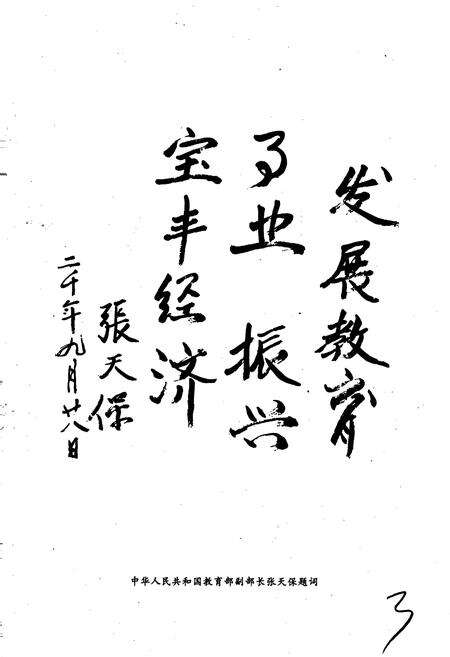 发展教育
事业 振兴
宝丰经济
張天保
二千年九月廿八日
中华人民共和国教育部副部长张天保题词
3